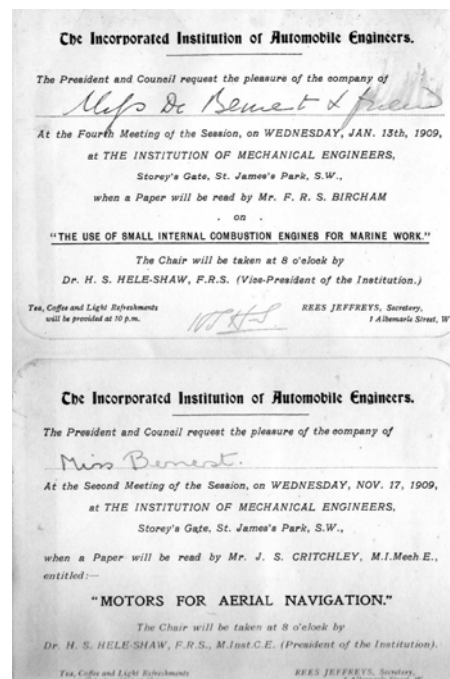 The Incorporated Institution of Automobile Engineers.
The President and Council request the pleasure of the company of
Miss De Benest & friend
At the Fourth Meeting of the Session, on WEDNESDAY, JAN. 13th, 1909,
at THE INSTITUTION OF MECHANICAL ENGINEERS,
Storey's Gate, St. James's Park, S.W.,
when a Paper will be read by Mr. F. R. S. BIRCHAM
. on .
"THE USE OF SMALL INTERNAL COMBUSTION ENGINES FOR MARINE WORK."
The Chair will be taken at 8 o'clock by
Dr. H. S. HELE-SHAW, F.R.S. (Vice-President of the Institution.)
Tea, Coffee and Light Refreshments REES JEFFREYS, Secretary,
will be provided at 10 p.m. 1 Albemarle Street, W
The Incorporated Institution of Automobile Engineers.
The President and Council request the pleasure of the company of
Miss Benest.
At the Second Meeting of the Session, on WEDNESDAY, NOV. 17, 1909,
at THE INSTITUTION OF MECHANICAL ENGINEERS,
Storey's Gate, St. James's Park, S.W.,
when a Paper will be read by Mr. J. S. CRITCHLEY, M.I.Mech E.,
entitled:—
"MOTORS FOR AERIAL NAVIGATION."
The Chair will be taken at 8 o'clock by
Dr. H. S. HELE-SHAW, F.R.S., M.Inst.C.E. (President of the Institution).
Tea, Coffee and Light Refreshments REES JEFFREYS, Secretary,